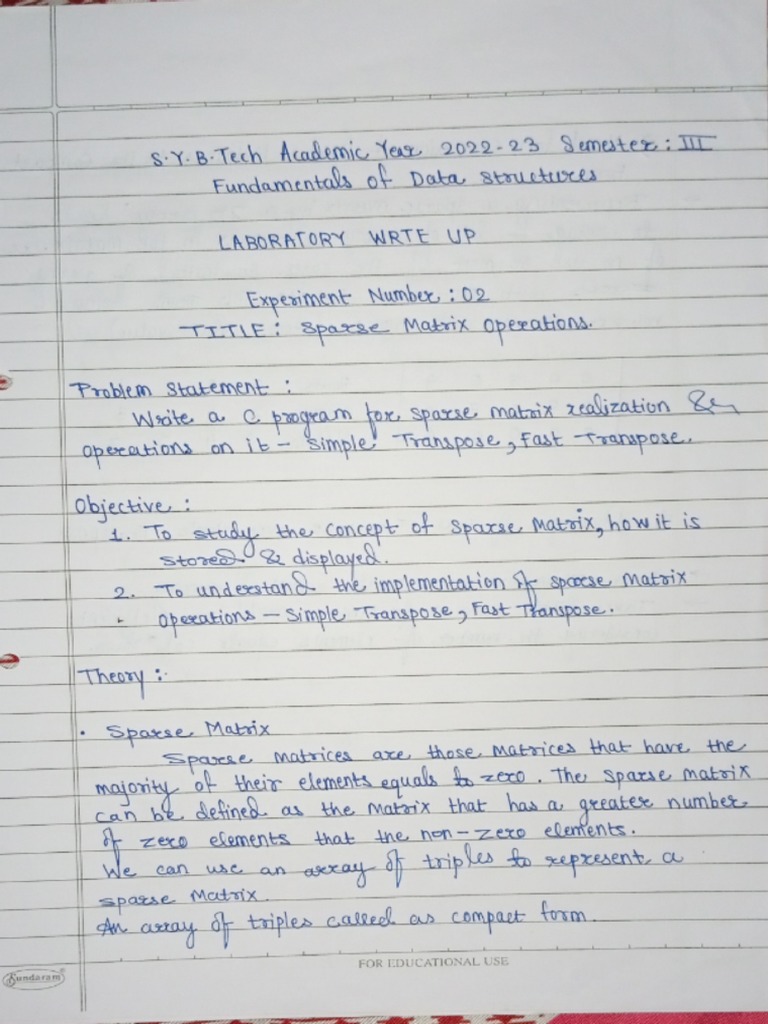 S.Y.B.Tech Academic Year 2022-23 Semester : III
Fundamentals of Data Structures
LABORATORY WRTE UP
Experiment Number : 02
TITLE : Sparse Matrix Operations.
Problem Statement :
Write a C program for sparse matrix realization &
operations on it - Simple Transpose, Fast Transpose.
Objective :
1. To study the concept of Sparse Matrix, how it is
stored & displayed.
2. To understand the implementation of sparse Matrix
Operations - Simple Transpose, Fast Transpose.
Theory :
• Sparse Matrix
Sparse matrices are those Matrices that have the
majority of their elements equals to zero. The sparse matrix
can be defined as the matrix that has a greater number
of zero elements that the non-zero elements.
We can use an array of triples to represent a
sparse Matrix.
An array of triples called as compact form.
FOR EDUCATIONAL USE
Sundaram